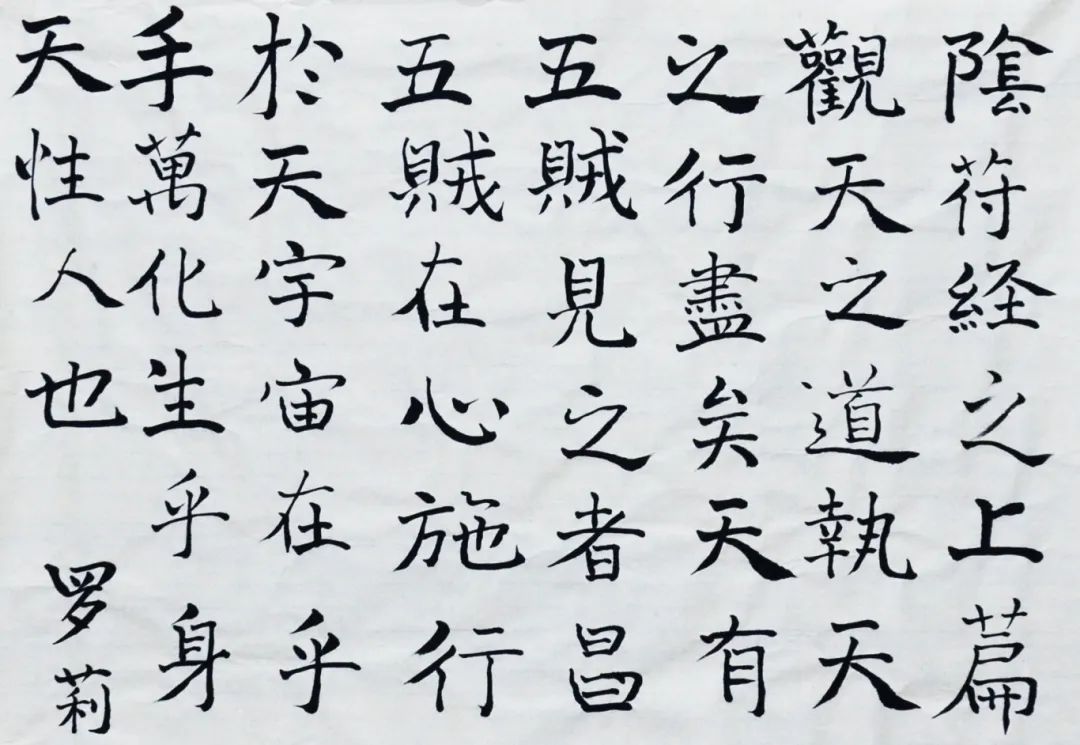 陰苻経之上萹
觀天之道執天
之行盡矣天有
五賊見之者昌
五賊在心施行
於天宇宙在乎
手萬化生乎身
天性人也
罗莉